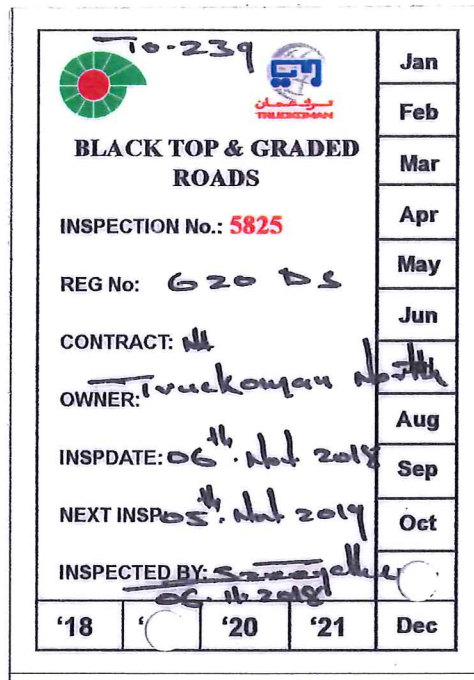 To-239
تركعمان
TRUCKOMAN
BLACK TOP & GRADED
ROADS
INSPECTION No.: 5825
REG No: 620 DS
CONTRACT:
OWNER: Truckoman North
INSPDATE: 06th. 2018
NEXT INSP: 05th. 2019
INSPECTED BY:
06.11.2018
'18
'20
'21
Jan
Feb
Mar
Apr
May
Jun
Aug
Sep
Oct
Dec